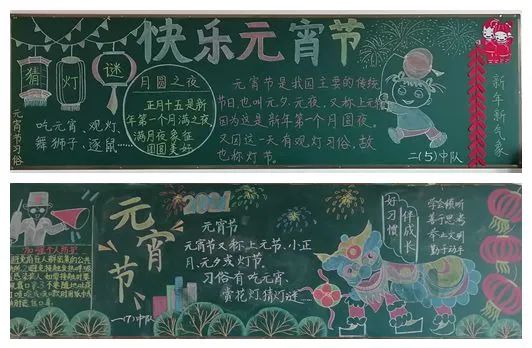 快乐元宵节
猜
灯
谜
元宵节习俗
吃元宵、观灯、
舞狮子、逐鼠……
月圆之夜
正月十五是新
年第一个月满之夜
满月夜象征
团圆美好
元宵节是我国主要的传统
节日,也叫元夕、元夜,又称上元节
因为这是新年第一个月圆夜。
又因这一天有观灯习俗,故
也称灯节。
二(5)中队
新年新气象
加强个人防护
元宵节
一(7)中队
2021
元宵节
元宵节又称上元节、小正
月、元夕或灯节。
习俗有吃元宵、
赏花灯、猜灯谜……
好习惯
伴成长
学会倾听
善于思考
举止文明
勤于动手